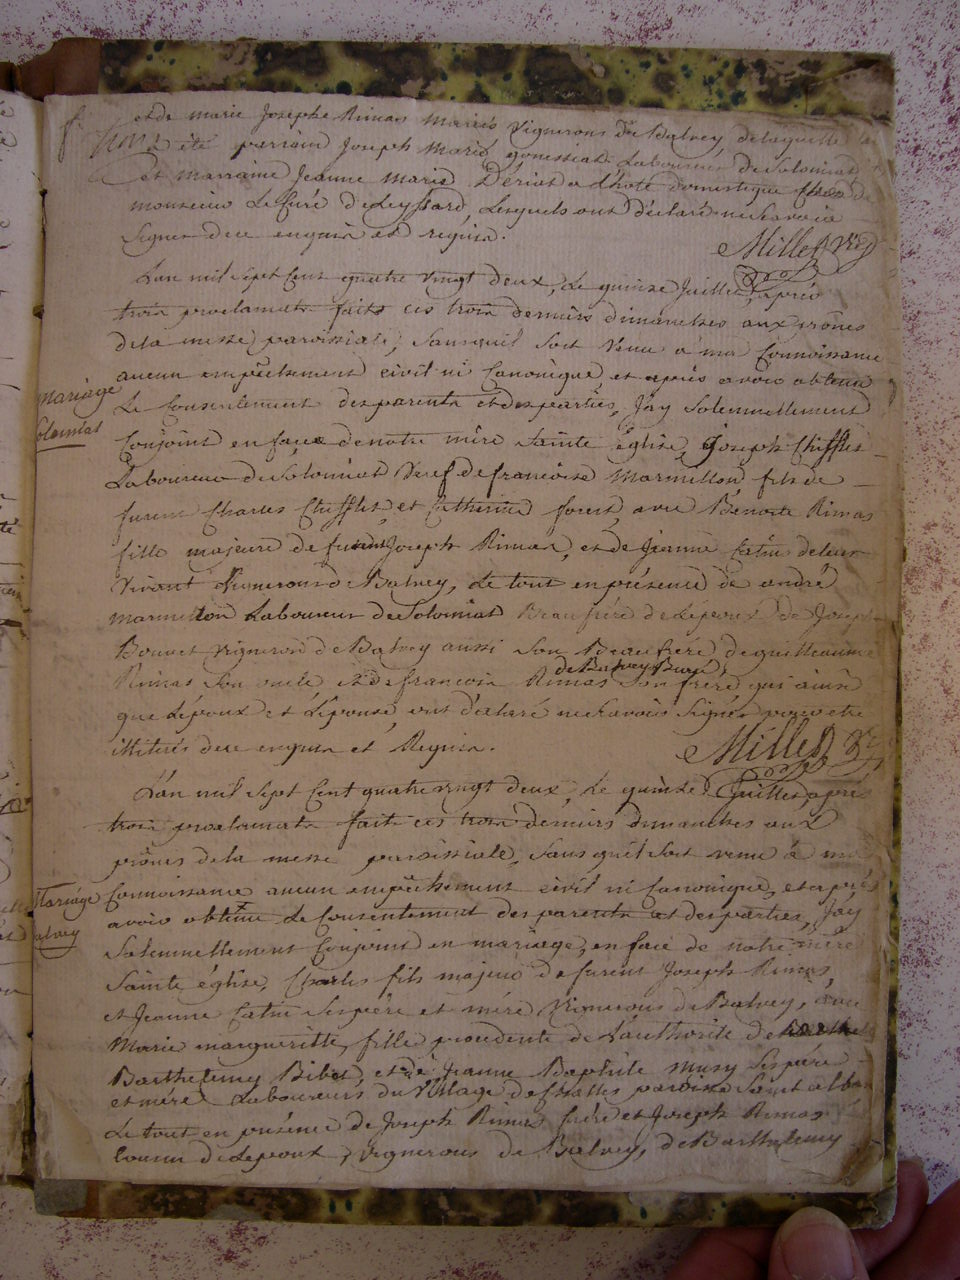 et de marie Josephe Rimas Mariés Vignerons de Balvey de laquelle
été parrain Joseph Marie gonessiat Laboureur de Soloniat
et marraine Jeanne Marie Deriat a L'hote domestique chez
monsieur Le Curé de Leyssard, Lesquels ont déclaré ne Savoir
Signer de ce enquis et requis.
Millet Vre
L'an mil Sept Cent quatre vingt deux, Le quinze Juillet, après
trois proclamats faits ces trois derniers dimanches aux prônes
de la messe paroissiale, Sans quil Soit Venu a ma Connoissance
aucun empêchement civil ni Canonique et après avoir obtenu
mariage
Soloniat
Le Consentement des parents et des parties, J'ay Solemnellement
Conjoint en face de notre mère Sainte église, Joseph Chifflet
Laboureur de Soloniat Veuf de françoise Marmillon, fils de
furent Charles Chifflet, et Catherine forest, avec Benoite Rimas
fille majeure de Joseph Rimas, et de Jeanne Catin de leur
Vivant Vignerons de Balvey, Le tout en présence de andré
marmillon Laboureur de Soloniat Beaufrère de Lepoux de Joseph
Bouvet vigneron de Balvey aussi Son Beaufrère de guilleaume
de Balvey
Rimas Son oncle et de françois Rimas Son frere qui ainsi
que Lépoux et Lépouse, ont déclaré ne Savoir Signer pour etre
illiterés de ce enquis et Requis.
Millet Vre
L'an mil Sept Cent quatre vingt deux, Le quinze Juillet, après
trois proclamats faits ces trois derniers dimanches aux
prônes de la messe paroissiale, Sans quil Soit venu à ma
Mariage
Connoissance aucun empêchement civil ni Canonique, et après
avoir obtenu Le Consentement des parents et des parties, J'ay
Solemnellement Conjoint en mariage, en face de notre mère
Sainte église, Charles fils majeur de furent Joseph Rimas
et Jeanne Catin Ses père et mère Vignerons de Balvey, avec
Marie margueritte, fille procedente de L'authorité de
Barthelemy Bibet, et de Jeanne Baptiste Musy Ses père
et mère Laboureurs du Village paroisse Saint alban
Le tout en présence de Joseph Rimas frère et Joseph Rimas
Cousin de Lepoux, vignerons de Balvey, de Barthelemy